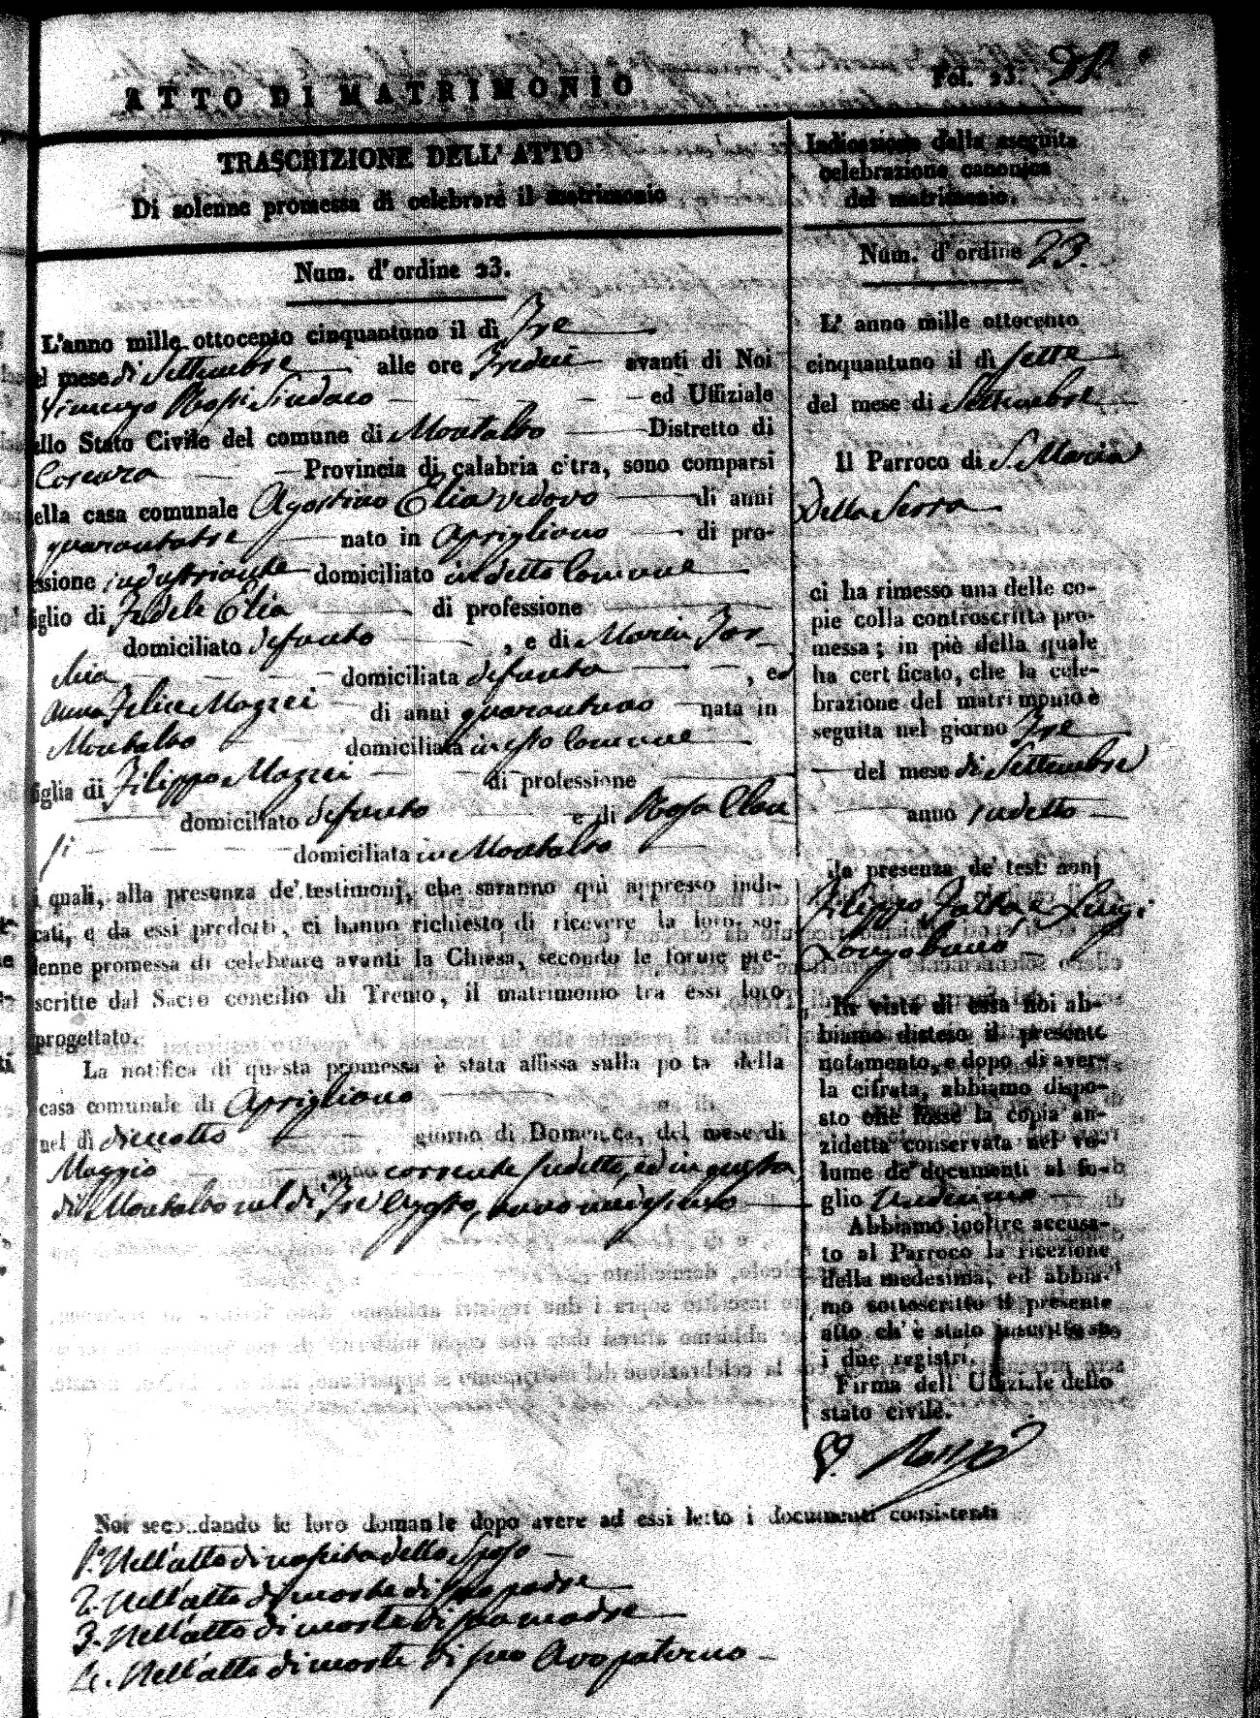 ATTO DI MATRIMONIO
Fol. 23.
TRASCRIZIONE DELL' ATTO
Di solenne promessa di celebrare il matrimonio
Num. d'ordine 23.
L'anno mille ottocento cinquantuno il dì Tre
el mese di Settembre alle ore Tredeci avanti di Noi
Rossi Sindaco ed Uffiziale
ello Stato Civile del comune di Montalto Distretto di
Cosenza Provincia di calabria c'tra, sono comparsi
ella casa comunale Agostino Elia vedovo di anni
quarantatre nato in Aprigliano di pro-
essione industriante domiciliato in detto Comune
iglio di Fedele Elia di professione
domiciliato defunto , e di Maria
domiciliata defunta , ed
Anna Felice Mazzei di anni quarantuno nata in
Montalto domiciliata in esso Comune
figlia di Filippo Mazzei di professione
domiciliato defunto e di Rosa Clau
si domiciliata in Montalto
i quali, alla presenza de' testimonj, che saranno quì appresso indi-
cati, e da essi prodotti, ci hanno richiesto di ricevere la loro so-
lenne promessa di celebrare avanti la Chiesa, secondo le forme pre-
scritte dal Sacro concilio di Trento, il matrimonio tra essi loro
progettato.
La notifica di questa promessa è stata affissa sulla po ta della
casa comunale di Aprigliano
nel dì diciotto giorno di Domenica, del mese di
Maggio anno corrente sudetto, ed in questa
di Montalto nel dì Tre Agosto, anno medesimo
Indicazione della seguita
celebrazione canonica
del matrimonio.
Num. d'ordine 23.
L' anno mille ottocento
cinquantuno il dì sette
del mese di Settembre
Il Parroco di S. Maria
Della Serra
ci ha rimesso una delle co-
pie colla controscritta pro-
messa; in piè della quale
ha cert ficato, che la cele-
brazione del matrimonio è
seguita nel giorno Tre
del mese di Settembre
anno sudetto
In presenza de' testi nonj
Filippo e Luigi
Longobuco
In vista di essa Noi ab-
biamo disteso il presente
notamento, e dopo di aver-
la cifrata, abbiamo dispo-
sto che fosse la copia an-
zidetta conservata nel vo-
lume de' documenti al fo-
glio undecimo
Abbiamo inoltre accusa-
to al Parroco la ricezione
della medesima, ed abbia-
mo sottoscritto il presente
atto ch'è stato inscritto su
i due registri.
Firma dell' Uffiziale dello
stato civile.
V. Rossi
Noi secondando le loro domande dopo avere ad essi letto i documenti consistenti
1.° Nell'atto di nascita dello Sposo
2. Nell'atto di morte di suo padre
3. Nell'atto di morte di sua madre
4. Nell'atto di morte di suo Avo paterno